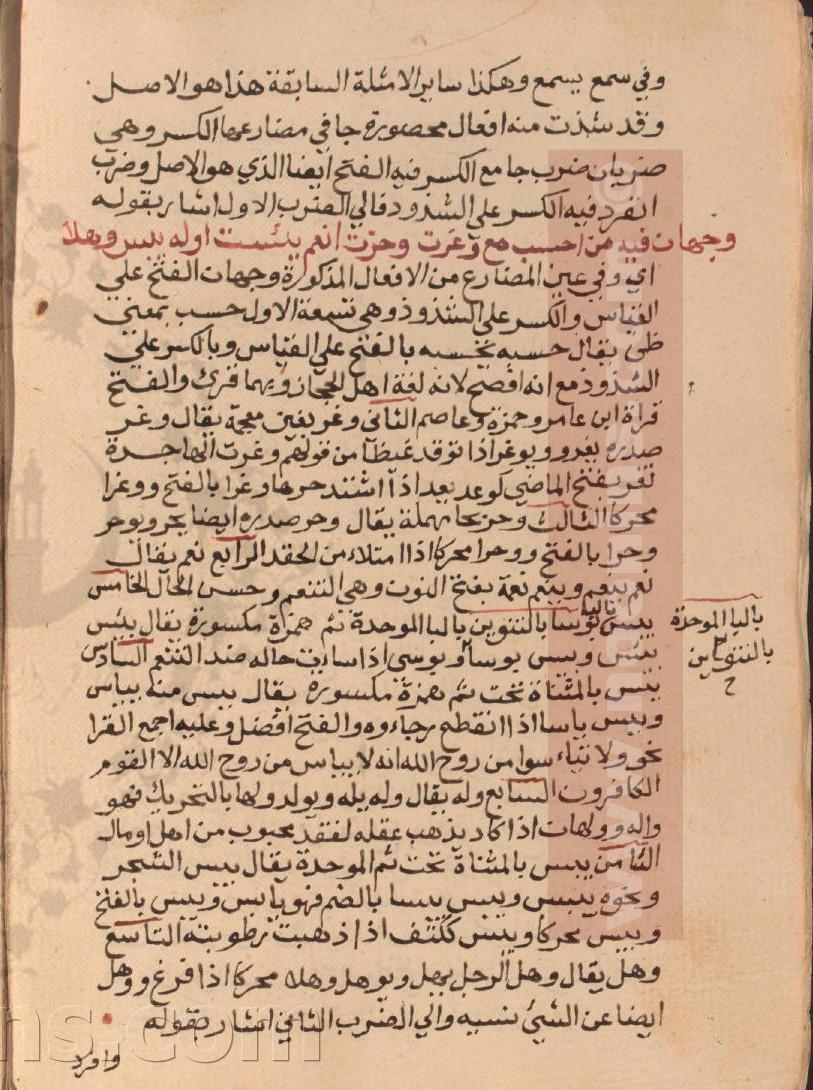 وفي سمع يسمع وهكذا ساير الامثلة السابقة هذا هو الاصل
وقد شذت منه افعال محصورة جا في مضارعها الكسر وهي
ضربان ضرب جا مع الكسر فيه الفتح ايضا الذي هو الاصل وضرب
انفرد فيه الكسر على الشذوذ فالي الضرب الاول اشار بقوله
وجهان فيه من احسب مع وغرت وحرت انعم يئست اوله يبس وهلا
اي وفي عين المضارع من الافعال المذكورة وجهان الفتح علي
القياس والكسر على الشذوذ وهي تسعة الاول حسب بمعني
ظن يقال حسبه يحسبه بالفتح علي القياس وبالكسر علي
الشذوذ مع انه افصح لانه لغة اهل الحجاز وبهما قرئ والفتح
قراة ابن عامر وحمزة وعاصم الثاني وغر بغين معجمة يقال وغر
صدره يغر ويوغر اذا توقد غيظا من قولهم وغرت الهاجرة
تغر بفتح الماضي كوعد يعد اذا اشتد حرها وغرا بالفتح ووغرا
محركا الثالث وحر بحا مهملة يقال وحر صدره ايضا يحر ويوحر
وحرا بالفتح ووحرا محركا اذا امتلاء من الحقد الرابع نعم يقال
نعم ينعم وينعم نعمة بفتح النون وهي التنعم وحسن الحال الخامس
بيس بالتنوين بالبا الموحدة ثم همزة مكسورة يقال بئس
بالبا الموحدة
بالتنوين
يبئس ويبس بوسا وبوسي اذا ساءت حاله ضد التنعم السادس
ييس بالمثناة تحت ثم همزة مكسورة يقال ييس منه يياس
وييس ياسا اذا انقطع رجاءوه والفتح افضل وعليه اجمع القرا
نحو ولا تياءسوا من روح الله انه لا يياس من روح الله الا القوم
الكافرون السابع وله يقال وله يله ويوله ولها بالتحريك فهو
واله وولهان اذا كاد يذهب عقله لفقد محبوب من اهل او مال
الثامن يبس بالمثناة تحت ثم الموحدة يقال يبس الشجر
ونحوه ييبس ويبس يبسا بالضم فهو يابس ويبس بالفتح
ويبس محركا ويبس ككتف اذا ذهبت رطوبته التاسع
وهل يقال وهل الرجل يهل ويوهل وهلا محركا اذا فزع ووهل
ايضا عن الشئ نسيه والي الضرب الثاني اشار بقوله
وافرد
ns.com